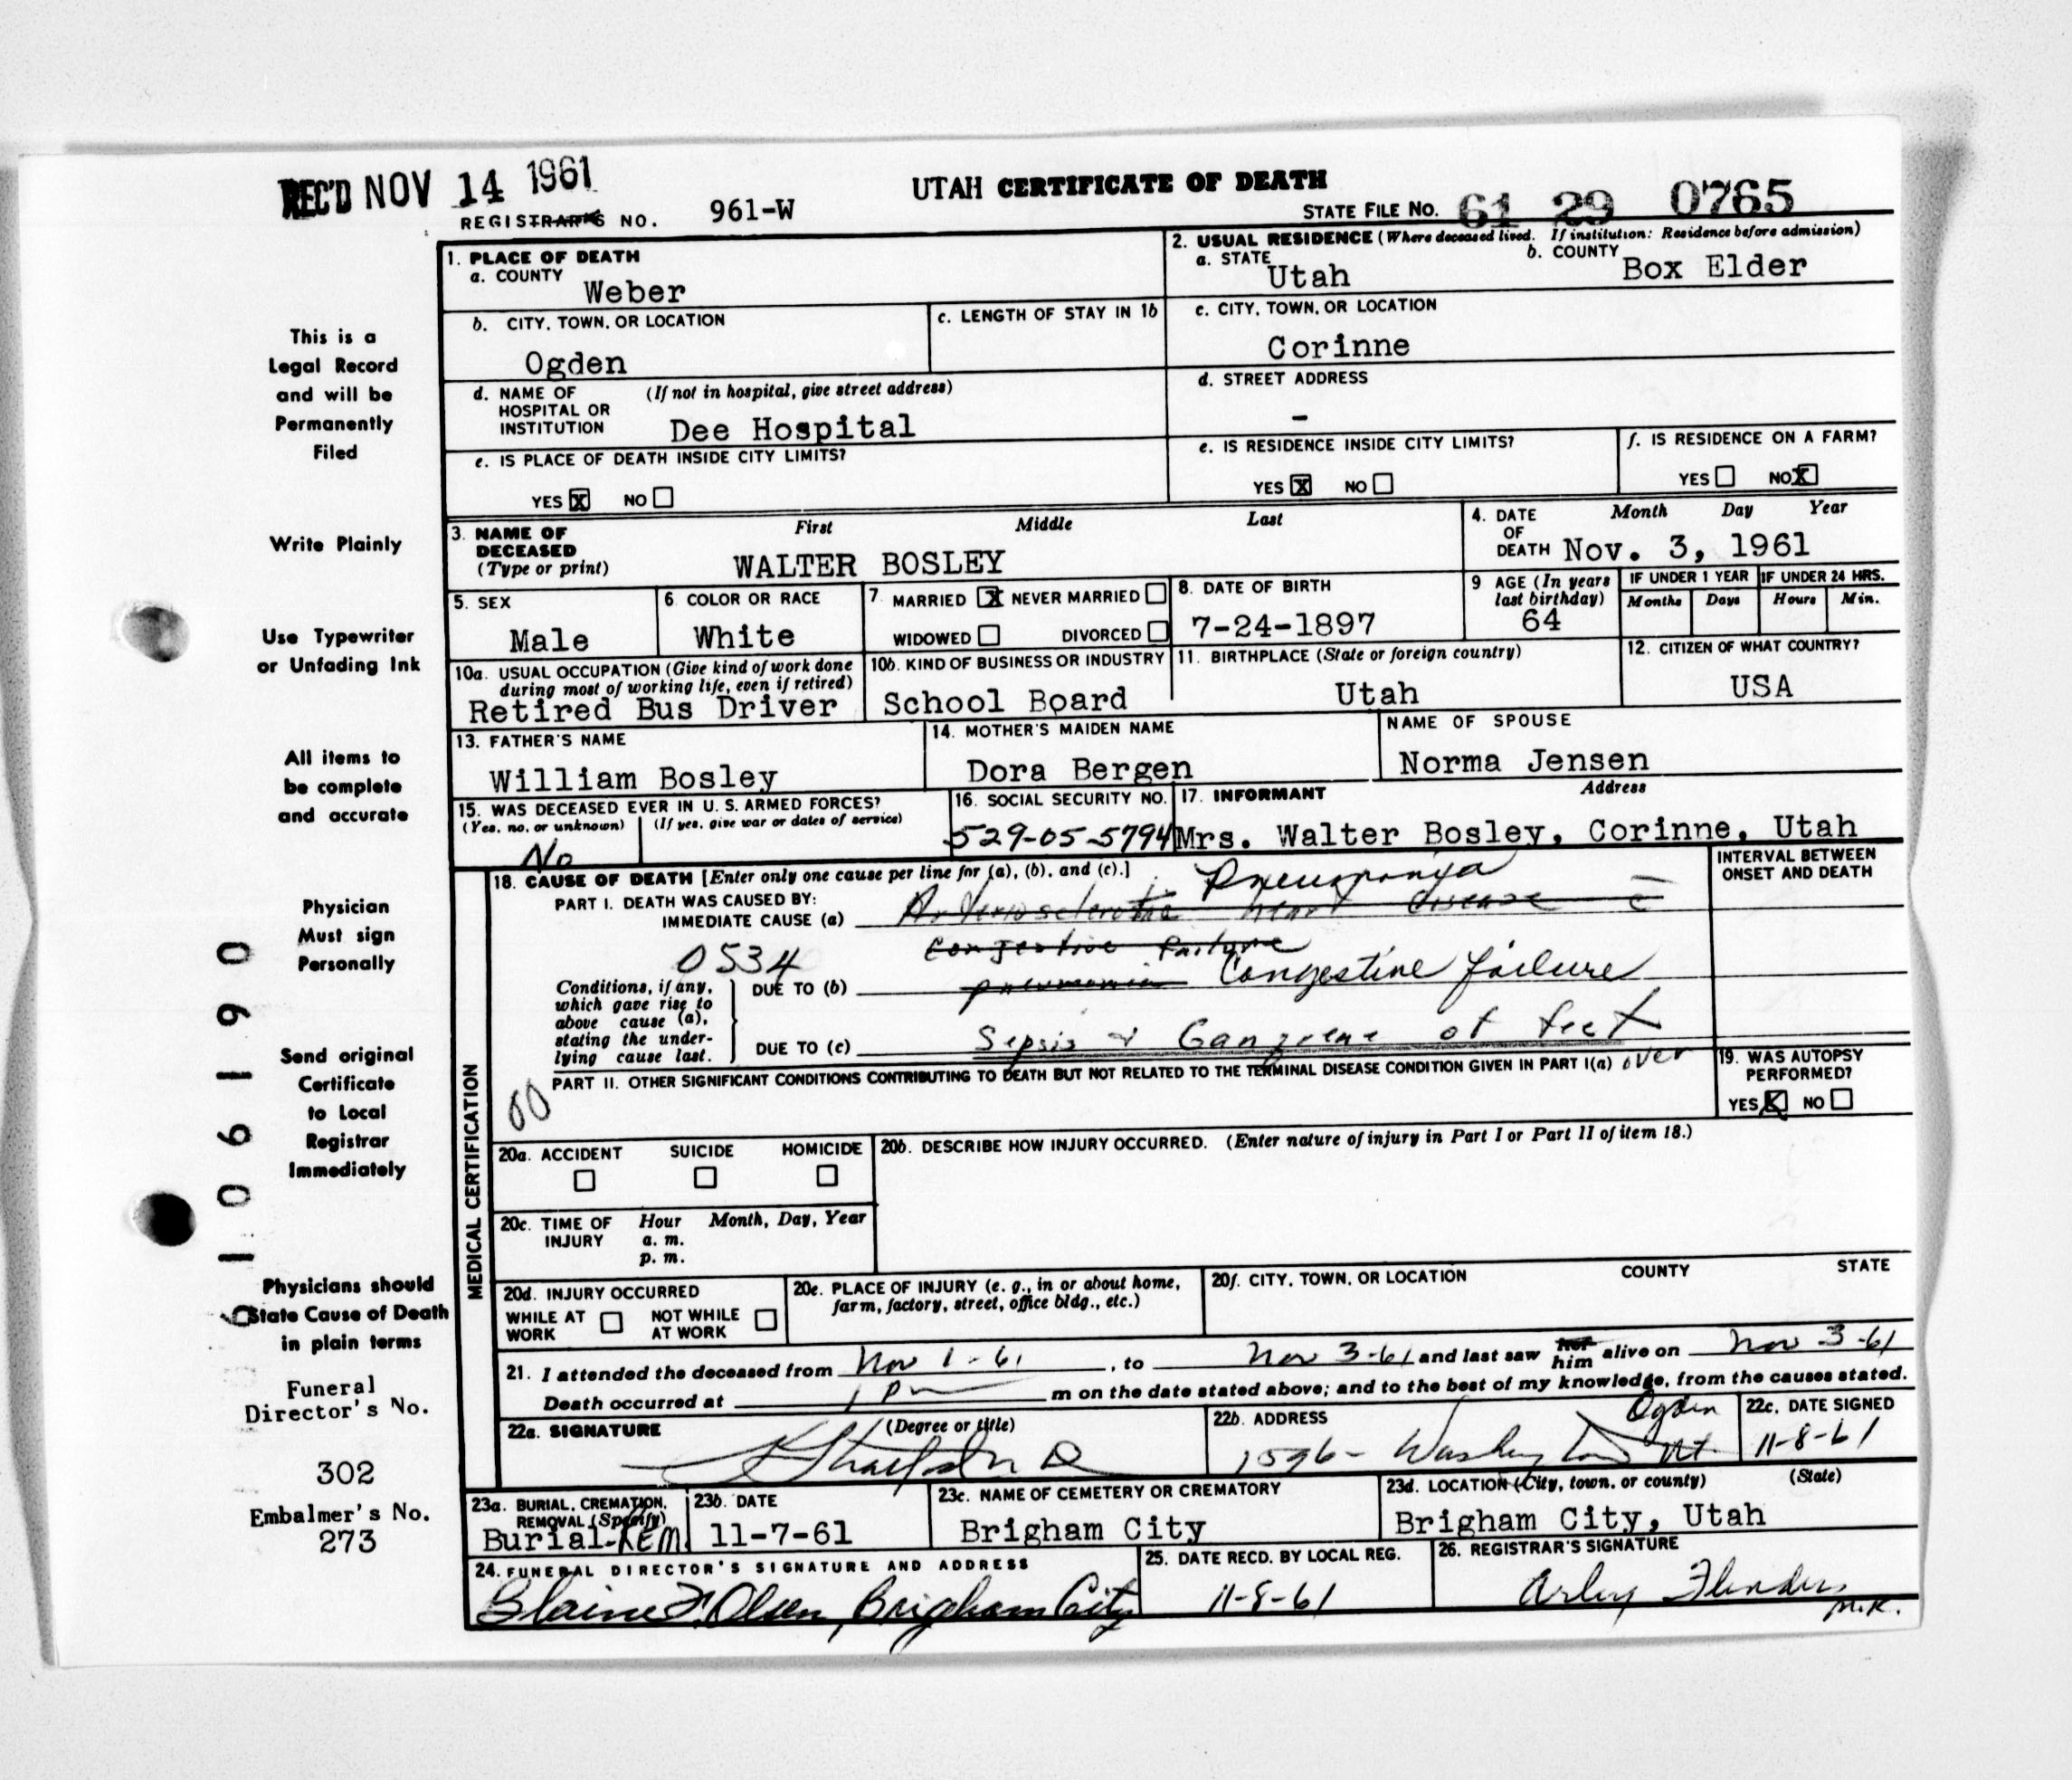 REC'D NOV 14 1961
UTAH CERTIFICATE OF DEATH
REGISTRAR'S NO. 961-W
STATE FILE No. 61 29 0765
1. PLACE OF DEATH
a. COUNTY
Weber
2. USUAL RESIDENCE (Where deceased lived. If institution: Residence before admission)
a. STATE
Utah
b. COUNTY
Box Elder
b. CITY, TOWN, OR LOCATION
Ogden
c. LENGTH OF STAY IN 1b
c. CITY, TOWN, OR LOCATION
Corinne
d. NAME OF HOSPITAL OR INSTITUTION (If not in hospital, give street address)
Dee Hospital
d. STREET ADDRESS
-
e. IS PLACE OF DEATH INSIDE CITY LIMITS?
YES X NO
e. IS RESIDENCE INSIDE CITY LIMITS?
YES X NO
f. IS RESIDENCE ON A FARM?
YES NO X
3. NAME OF DECEASED (Type or print)
First Middle Last
WALTER BOSLEY
4. DATE OF DEATH Month Day Year
Nov. 3, 1961
5. SEX
Male
6. COLOR OR RACE
White
7. MARRIED X NEVER MARRIED
WIDOWED DIVORCED
8. DATE OF BIRTH
7-24-1897
9 AGE (In years last birthday)
64
IF UNDER 1 YEAR
Months Days
IF UNDER 24 HRS.
Hours Min.
10a. USUAL OCCUPATION (Give kind of work done during most of working life, even if retired)
Retired Bus Driver
10b. KIND OF BUSINESS OR INDUSTRY
School Board
11. BIRTHPLACE (State or foreign country)
Utah
12. CITIZEN OF WHAT COUNTRY?
USA
13. FATHER'S NAME
William Bosley
14. MOTHER'S MAIDEN NAME
Dora Bergen
NAME OF SPOUSE
Norma Jensen
15. WAS DECEASED EVER IN U. S. ARMED FORCES?
(Yes, no, or unknown) (If yes, give war or dates of service)
No
16. SOCIAL SECURITY NO.
529-05-5794
17. INFORMANT Address
Mrs. Walter Bosley, Corinne, Utah
MEDICAL CERTIFICATION
18. CAUSE OF DEATH [Enter only one cause per line for (a), (b), and (c).]
INTERVAL BETWEEN ONSET AND DEATH
PART I. DEATH WAS CAUSED BY:
Pneumonia
IMMEDIATE CAUSE (a) Arteriosclerotic heart disease c̄
Congestive failure
0534
Conditions, if any, which gave rise to above cause (a), stating the underlying cause last.
DUE TO (b) pneumonia Congestive failure
DUE TO (c) Sepsis & Gangrene of feet
over
00
PART II. OTHER SIGNIFICANT CONDITIONS CONTRIBUTING TO DEATH BUT NOT RELATED TO THE TERMINAL DISEASE CONDITION GIVEN IN PART I(a)
19. WAS AUTOPSY PERFORMED?
YES X NO
20a. ACCIDENT SUICIDE HOMICIDE
20b. DESCRIBE HOW INJURY OCCURRED. (Enter nature of injury in Part I or Part II of item 18.)
20c. TIME OF INJURY Hour Month, Day, Year
a. m.
p. m.
20d. INJURY OCCURRED
WHILE AT WORK NOT WHILE AT WORK
20e. PLACE OF INJURY (e. g., in or about home, farm, factory, street, office bldg., etc.)
20f. CITY, TOWN, OR LOCATION COUNTY STATE
21. I attended the deceased from Nov 1-61, to Nov 3-61 and last saw her him alive on Nov 3-61
Death occurred at 1 P m on the date stated above; and to the best of my knowledge, from the causes stated.
22a. SIGNATURE (Degree or title)
22b. ADDRESS
Ogden
Washington Ut.
22c. DATE SIGNED
11-8-61
23a. BURIAL, CREMATION, REMOVAL (Specify)
Burial-REM.
23b. DATE
11-7-61
23c. NAME OF CEMETERY OR CREMATORY
Brigham City
23d. LOCATION (City, town, or county) (State)
Brigham City, Utah
24. FUNERAL DIRECTOR'S SIGNATURE AND ADDRESS
Blaine F. Olsen, Brigham City
25. DATE RECD. BY LOCAL REG.
11-8-61
26. REGISTRAR'S SIGNATURE
Arley Flinders
m.k.
This is a
Legal Record
and will be
Permanently
Filed
Write Plainly
Use Typewriter
or Unfading Ink
All items to
be complete
and accurate
Physician
Must sign
Personally
Send original
Certificate
to Local
Registrar
Immediately
Physicians should
State Cause of Death
in plain terms
Funeral
Director's No.
302
Embalmer's No.
273
106190